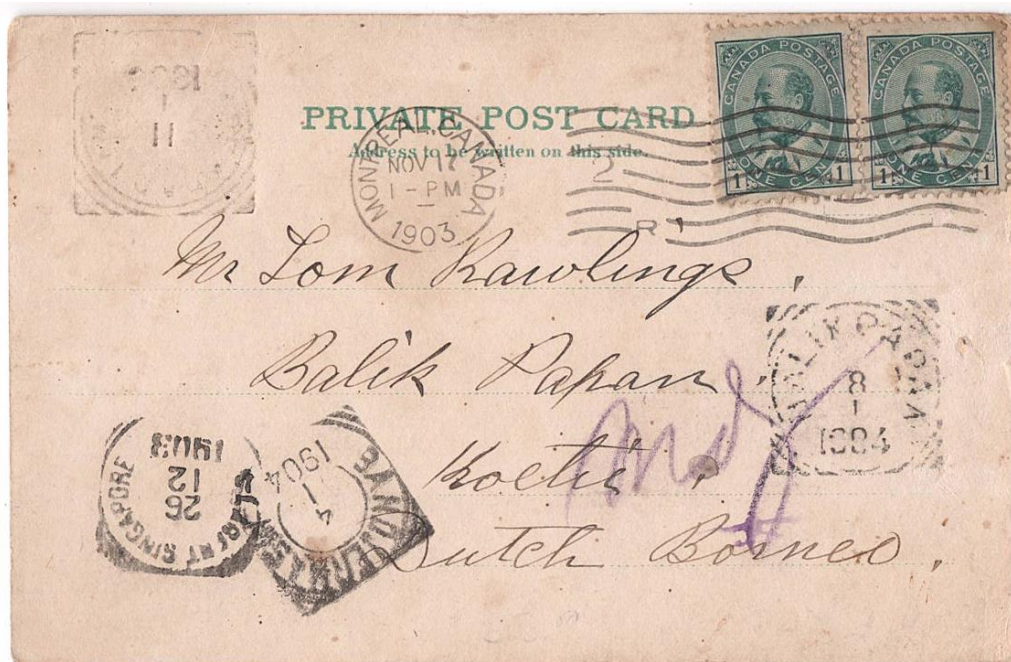 PRIVATE POST CARD
Address to be written on this side.
MONTREAL, CANADA
NOV 17
1-PM
1903
CANADA POSTAGE
ONE CENT
1 1
CANADA POSTAGE
ONE CENT
1 1
11
Mr Tom Rawlings,
Balik Papan,
BALIKPAPAN
8
1
1904
Koetei,
Dutch Borneo.
SINGAPORE
26
12
1903
BANDJERMASIN
4 1
1904